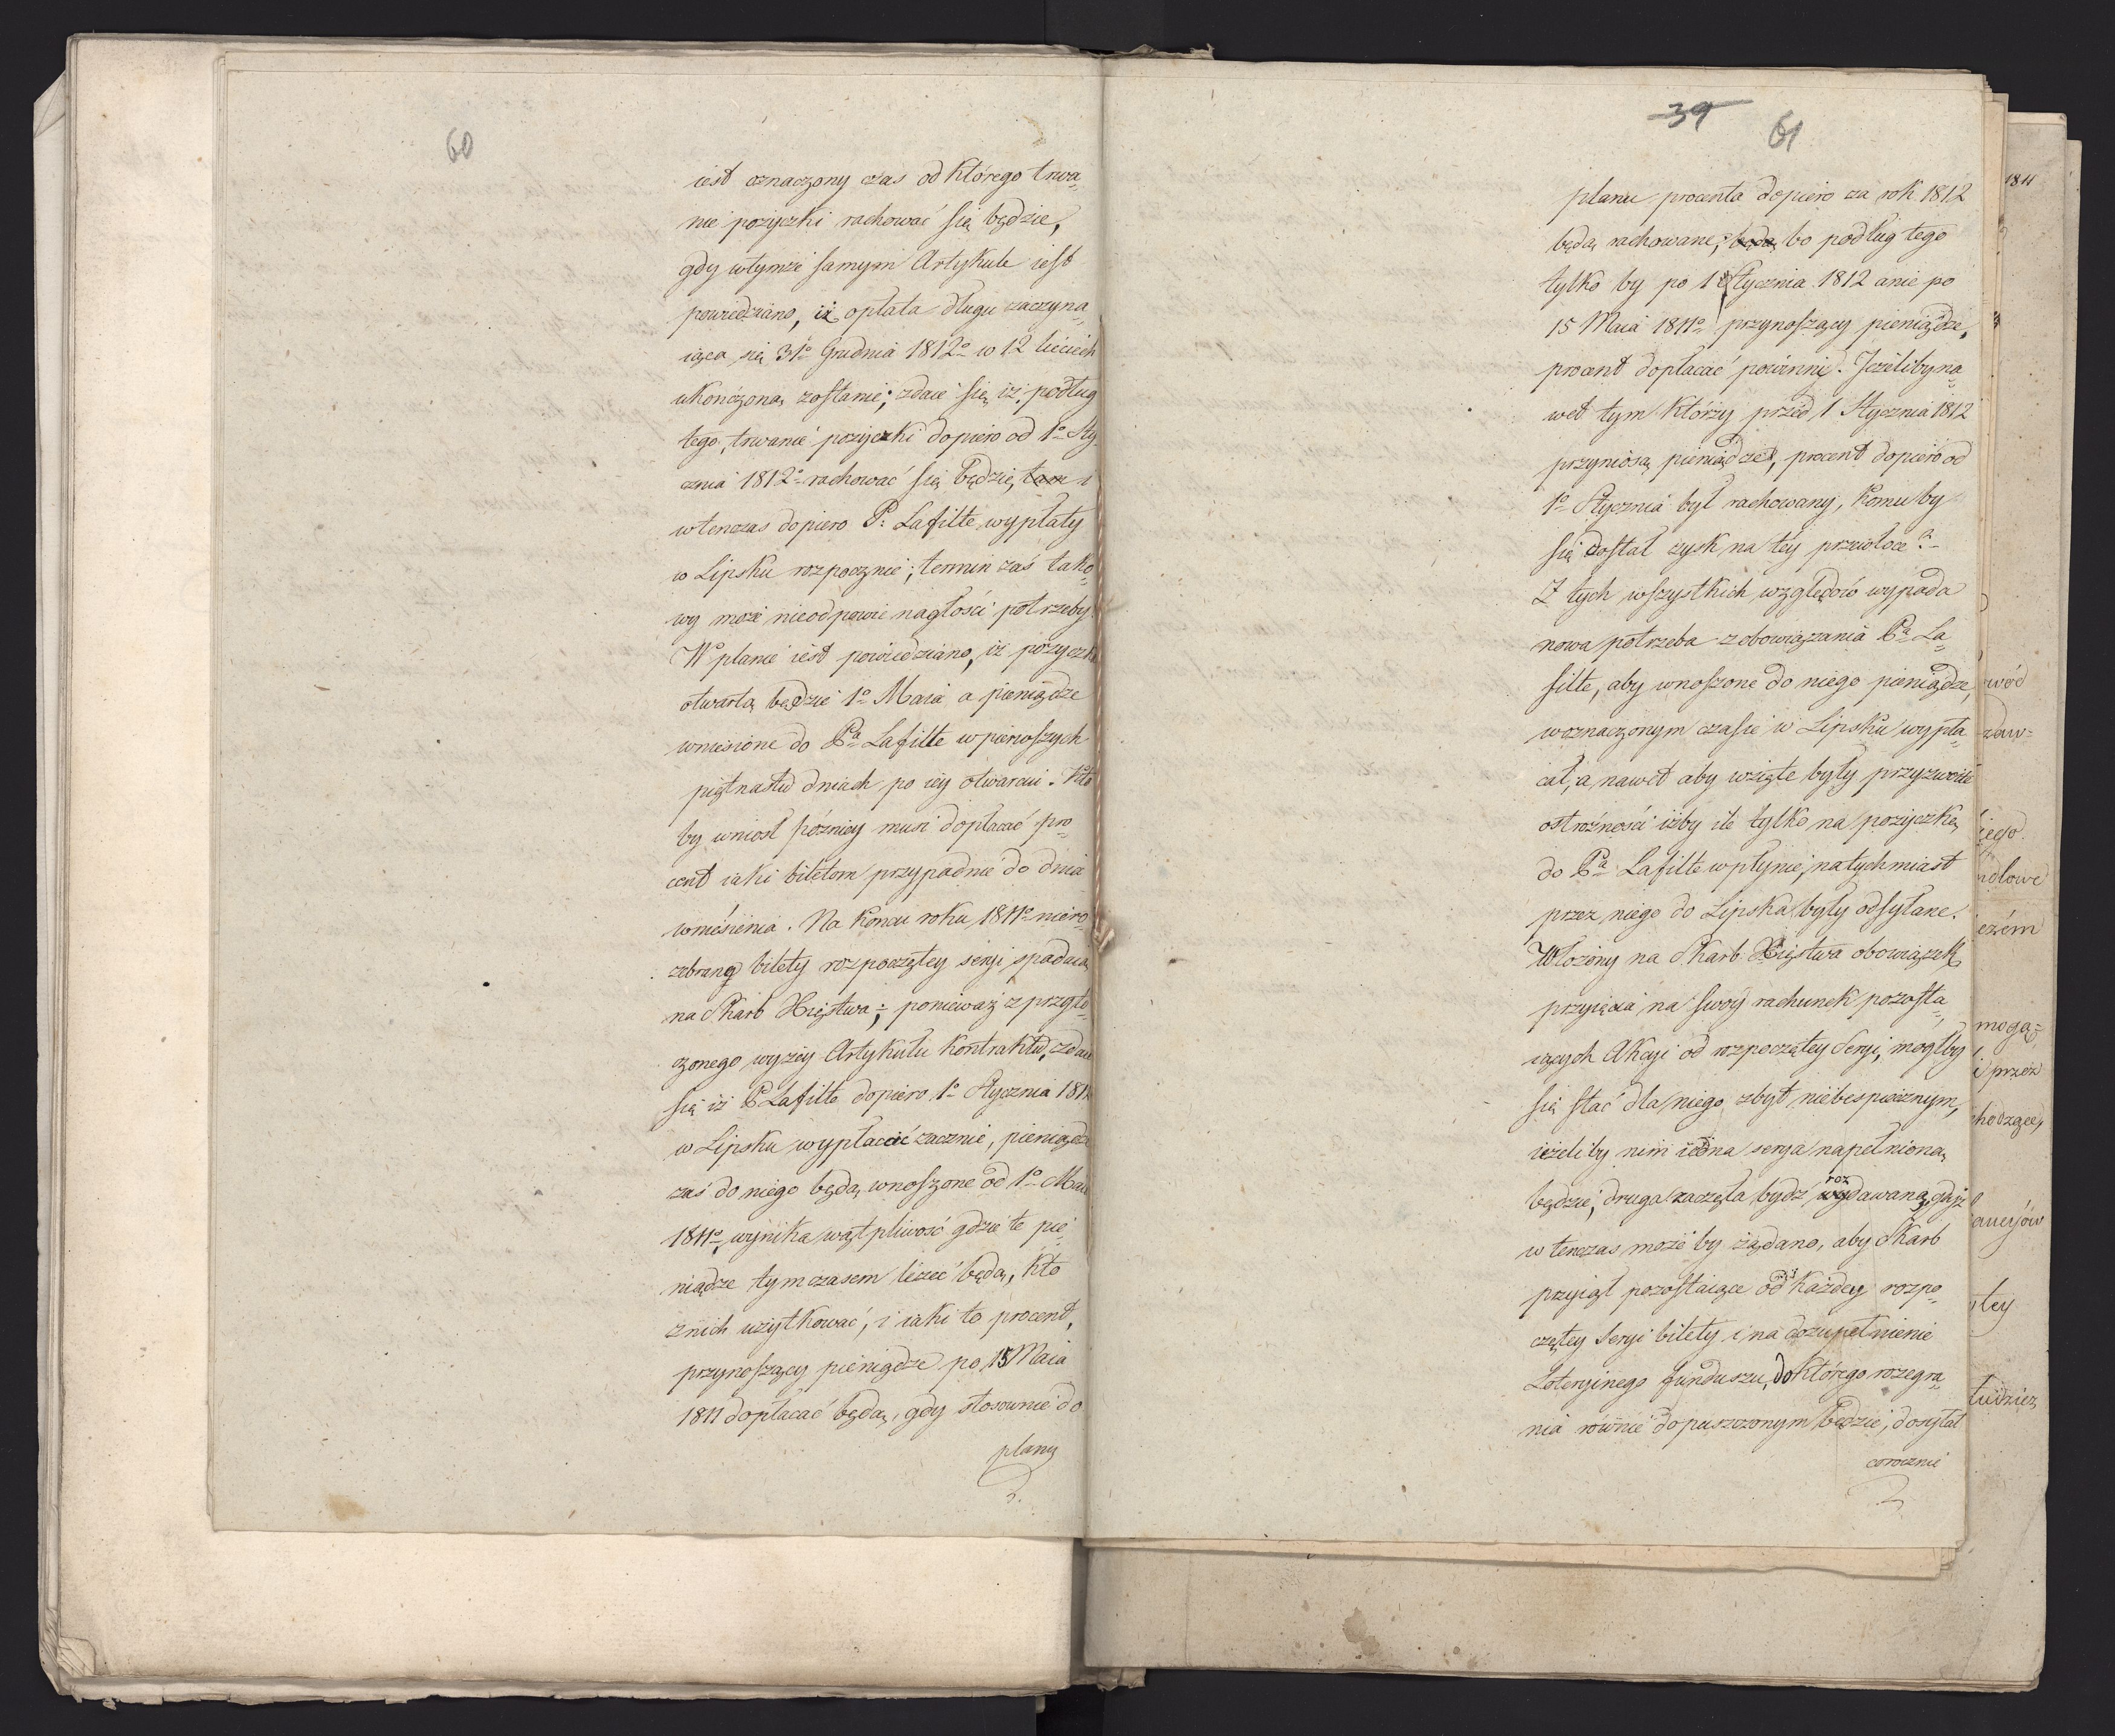 60
iest oznaczony czas od którego trwa„
nie pożyczki rachować się będzie,
gdy wtymże samym Artykule iest
powiedziano, iż opłata długu zaczyna„
iąca się 31o Grudnia 1812o w 12 lieciech
ukończoną zostanie; zdaie się iż podług
tego, trwanie pożyczki dopiero od 1o Sty„
cznia 1812o rachować się będzie, tam i
wtenczas dopiero P: Lafitte wypłaty
w Lipsku rozpocznie; termin zaś tako„
wy może nieodpowie nagłości potrzeby.
W planie iest powiedziano, iż pożyczka
otwartą będzie 1o Maia a pieniądze
wniesione do Pa Lafitte wpierwszych
piętnastu dniach po iey otwarciu. Kto
by wniosł późniey musi dopłacać pro„
cent iaki biletom przypadnie do dnia
wniesienia. Na końcu roku 1811o niero„
zebrane bilety rozpoczętey seryi spadaią
na Skarb Xięstwa; ponieważ z przyto„
czonego wyżey Artykułu Kontraktu, zdaie
się iż P Lafitte dopiero 1o Stycznia 1812
w Lipsku wypłacać zacznie, pieniądze
zaś do niego będą wnoszone od 1o Maia
1811o, wynika wątpliwość gdzie te pie„
niądze tymczasem leżeć będą, kto
znich użytkować, i iaki to procent,
przynoszący pieniądze po 15 Maia
1811 dopłacać będą, gdy stosownie do
planu
39
61
planu procenta dopiero za rok 1812
będą rachowane, będą bo podług tego
tylko by po 1 Stycznia 1812 anie po
15 Maia 1811o przynoszący pieniądze,
procent dopłacać powinni. Jeżeliby na„
wet tym którzy przed 1 Stycznia 1812
przyniosą pieniądze, procent dopiero od
1o Stycznia był rachowany, komu by
się dostał zysk na tey przewłoce?
Z tych wszystkich względów wypada
nowa potrzeba zobowiązania Pa La„
fitte, aby wnoszone do niego pieniądze,
woznaczonym czasie w Lipsku wypła„
cał, a nawet aby wzięte były przyzwoite
ostrożności iżby ile tylko na pożyczkę
do Pa Lafitte wpłynie, natychmiast
przez niego do Lipska były odsyłane.
Włożony na Skarb Xięstwa obowiązek
przyięcia na swóy rachunek pozosta„
iących Akcyi od rozpoczętey Seryi, mogłby
się stać dla niego zbyt niebespiecznym,
ieżeliby nim iedna serya napełnioną
będzie, druga zaczęła bydź wydawaną, gdyż
roz
w tenczas może by żądano, aby Skarb
przyiął pozostaiące od każdey rozpo„
czętey Seryi bilety i na dozupełnienie
Loteryinego funduszu, do którego rozegra„
nia równie dopuszczonym będzie, dosyłał
corocznie
1811
wód
zaw=
iego
ndlowe
ezem
mogą=
i przez
hodzące,
tey
tudzież